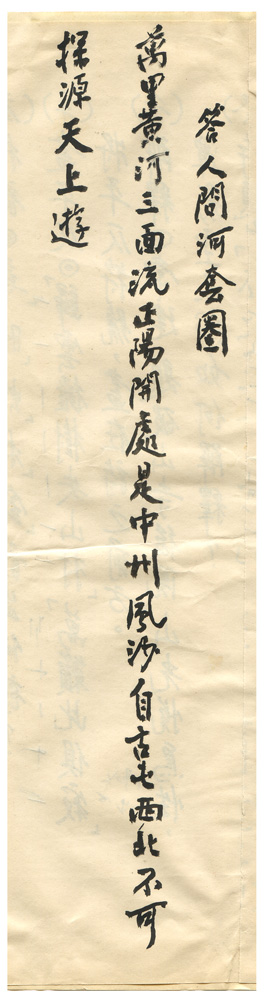 答人問河套圈
萬里黃河三面流正陽開處是中州風沙自古屯西北不可
探源天上遊